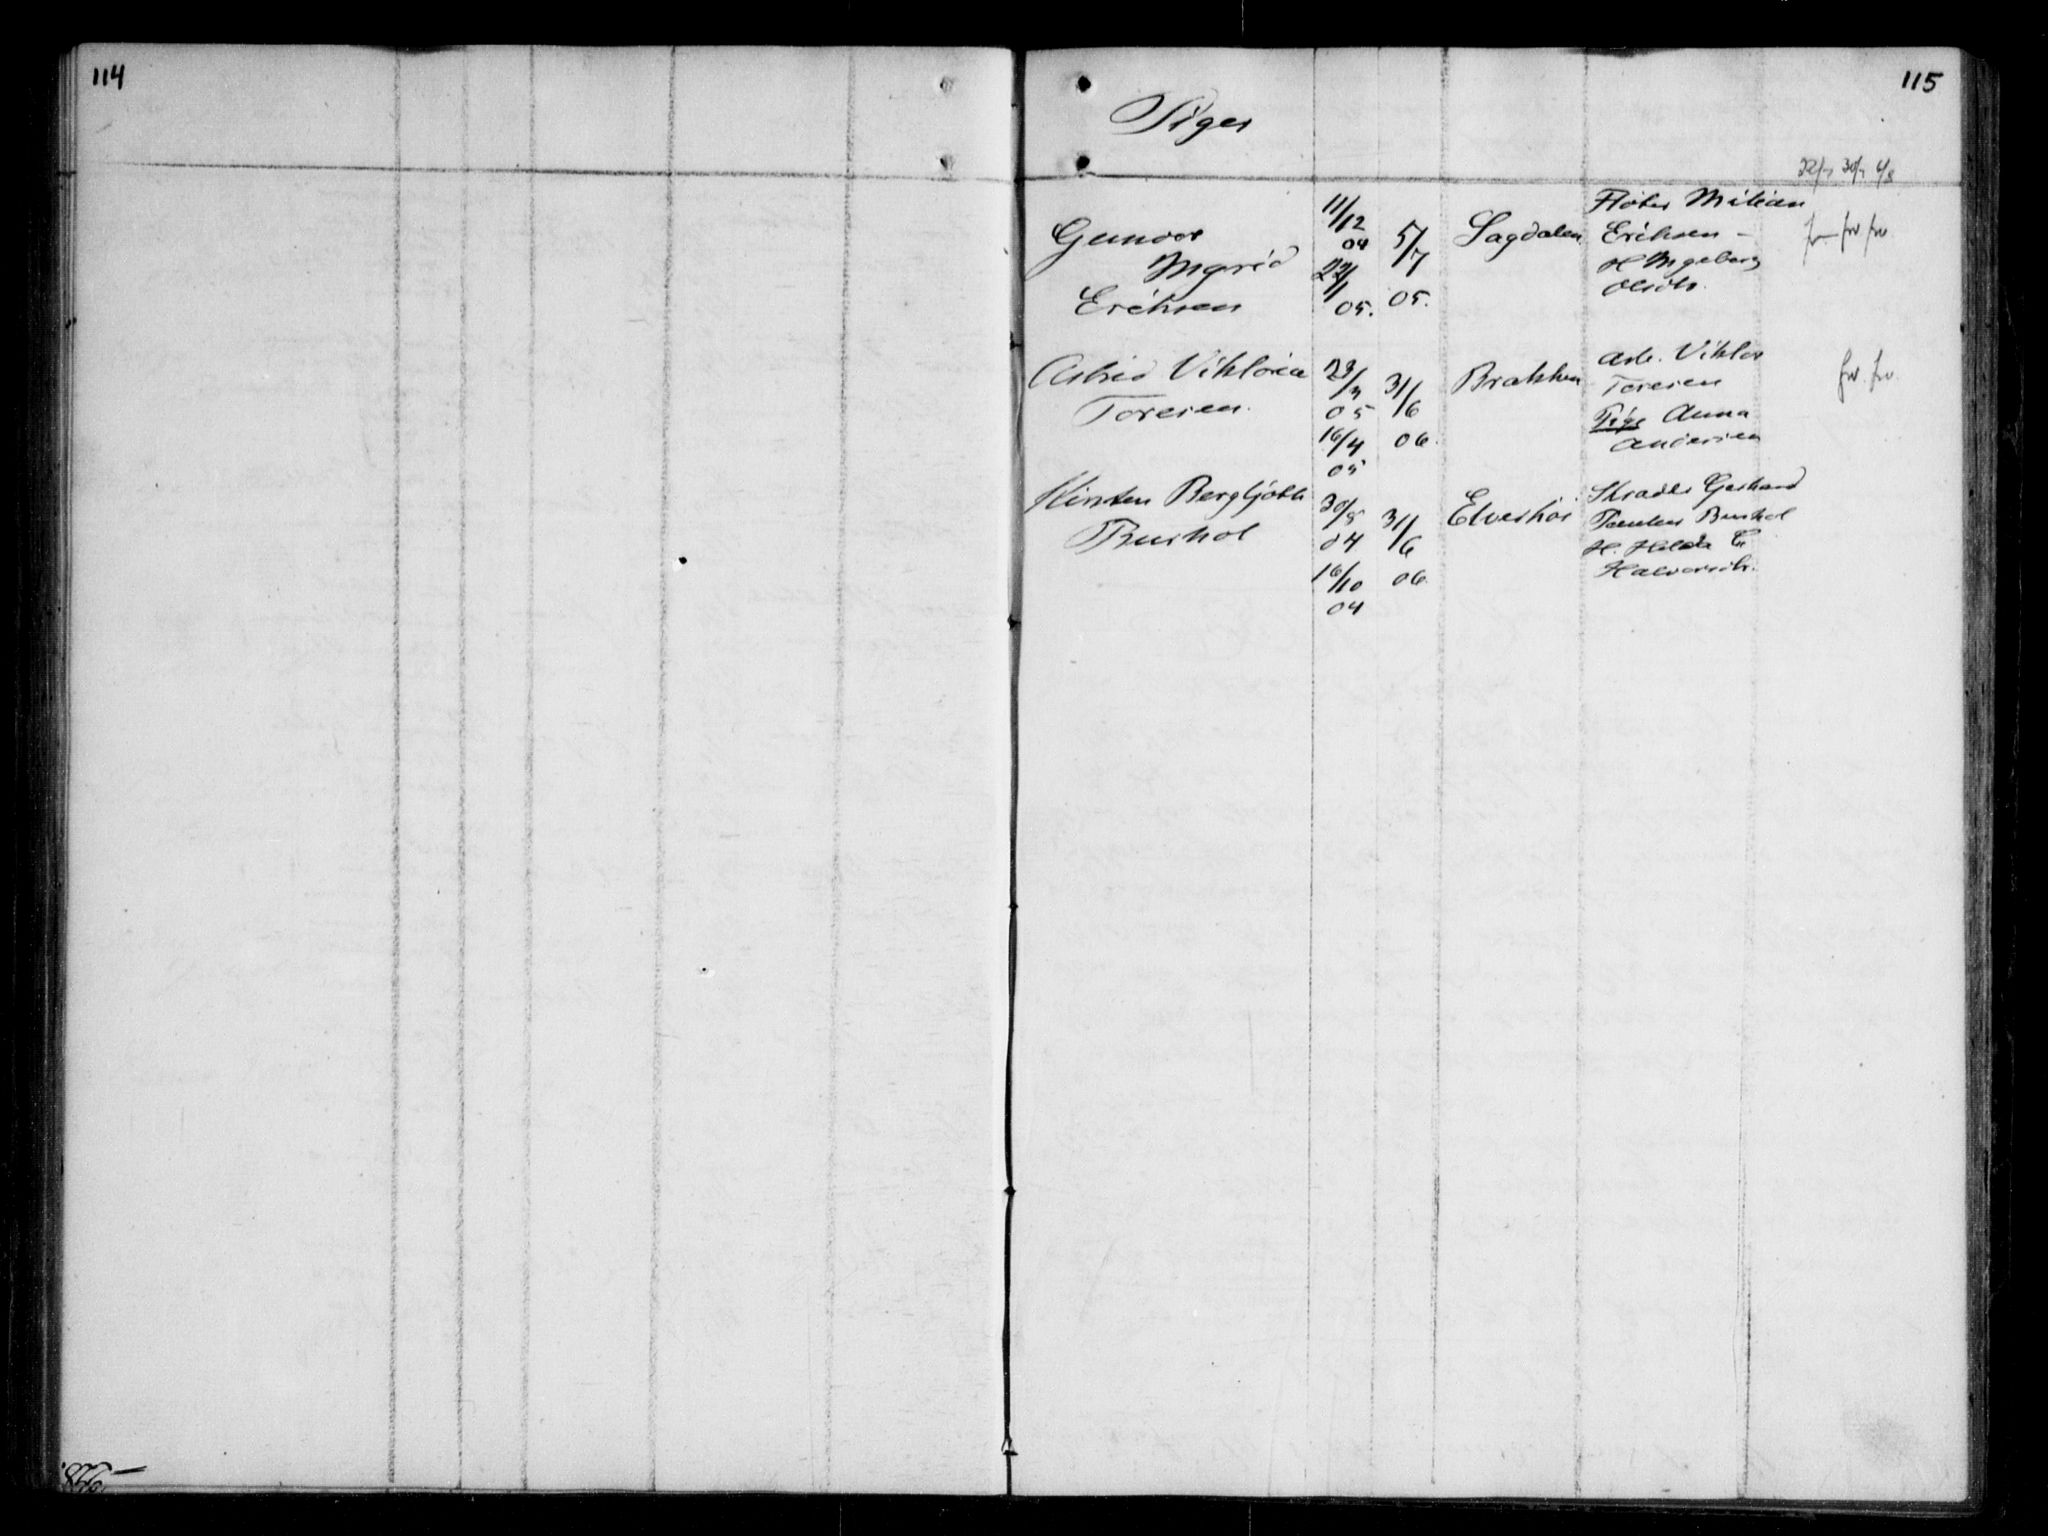 114
115
Piger
22/7 30/7 6/8
Gunvor
Ingrid
Eriksen
11/12
04
22/1
05.
5/7
05.
Sagdalen
Fløter Milian
Eriksen -
H Ingeborg
Olsdtr.
fr. fr. fr.
Astrid Viktoria
Toresen.
23/3
05
16/4
05
3/1
6
06.
Brakken
Arb. Viktor
Toresen
Pige Anna
Andersen
fr. fr.
Kirsten Bergljótt
Burhol
30/8
04
16/10
04
3/1
6
06
Elveshøi
Gerhard
Burhol
H. Hilda C
Halvorsdtr.